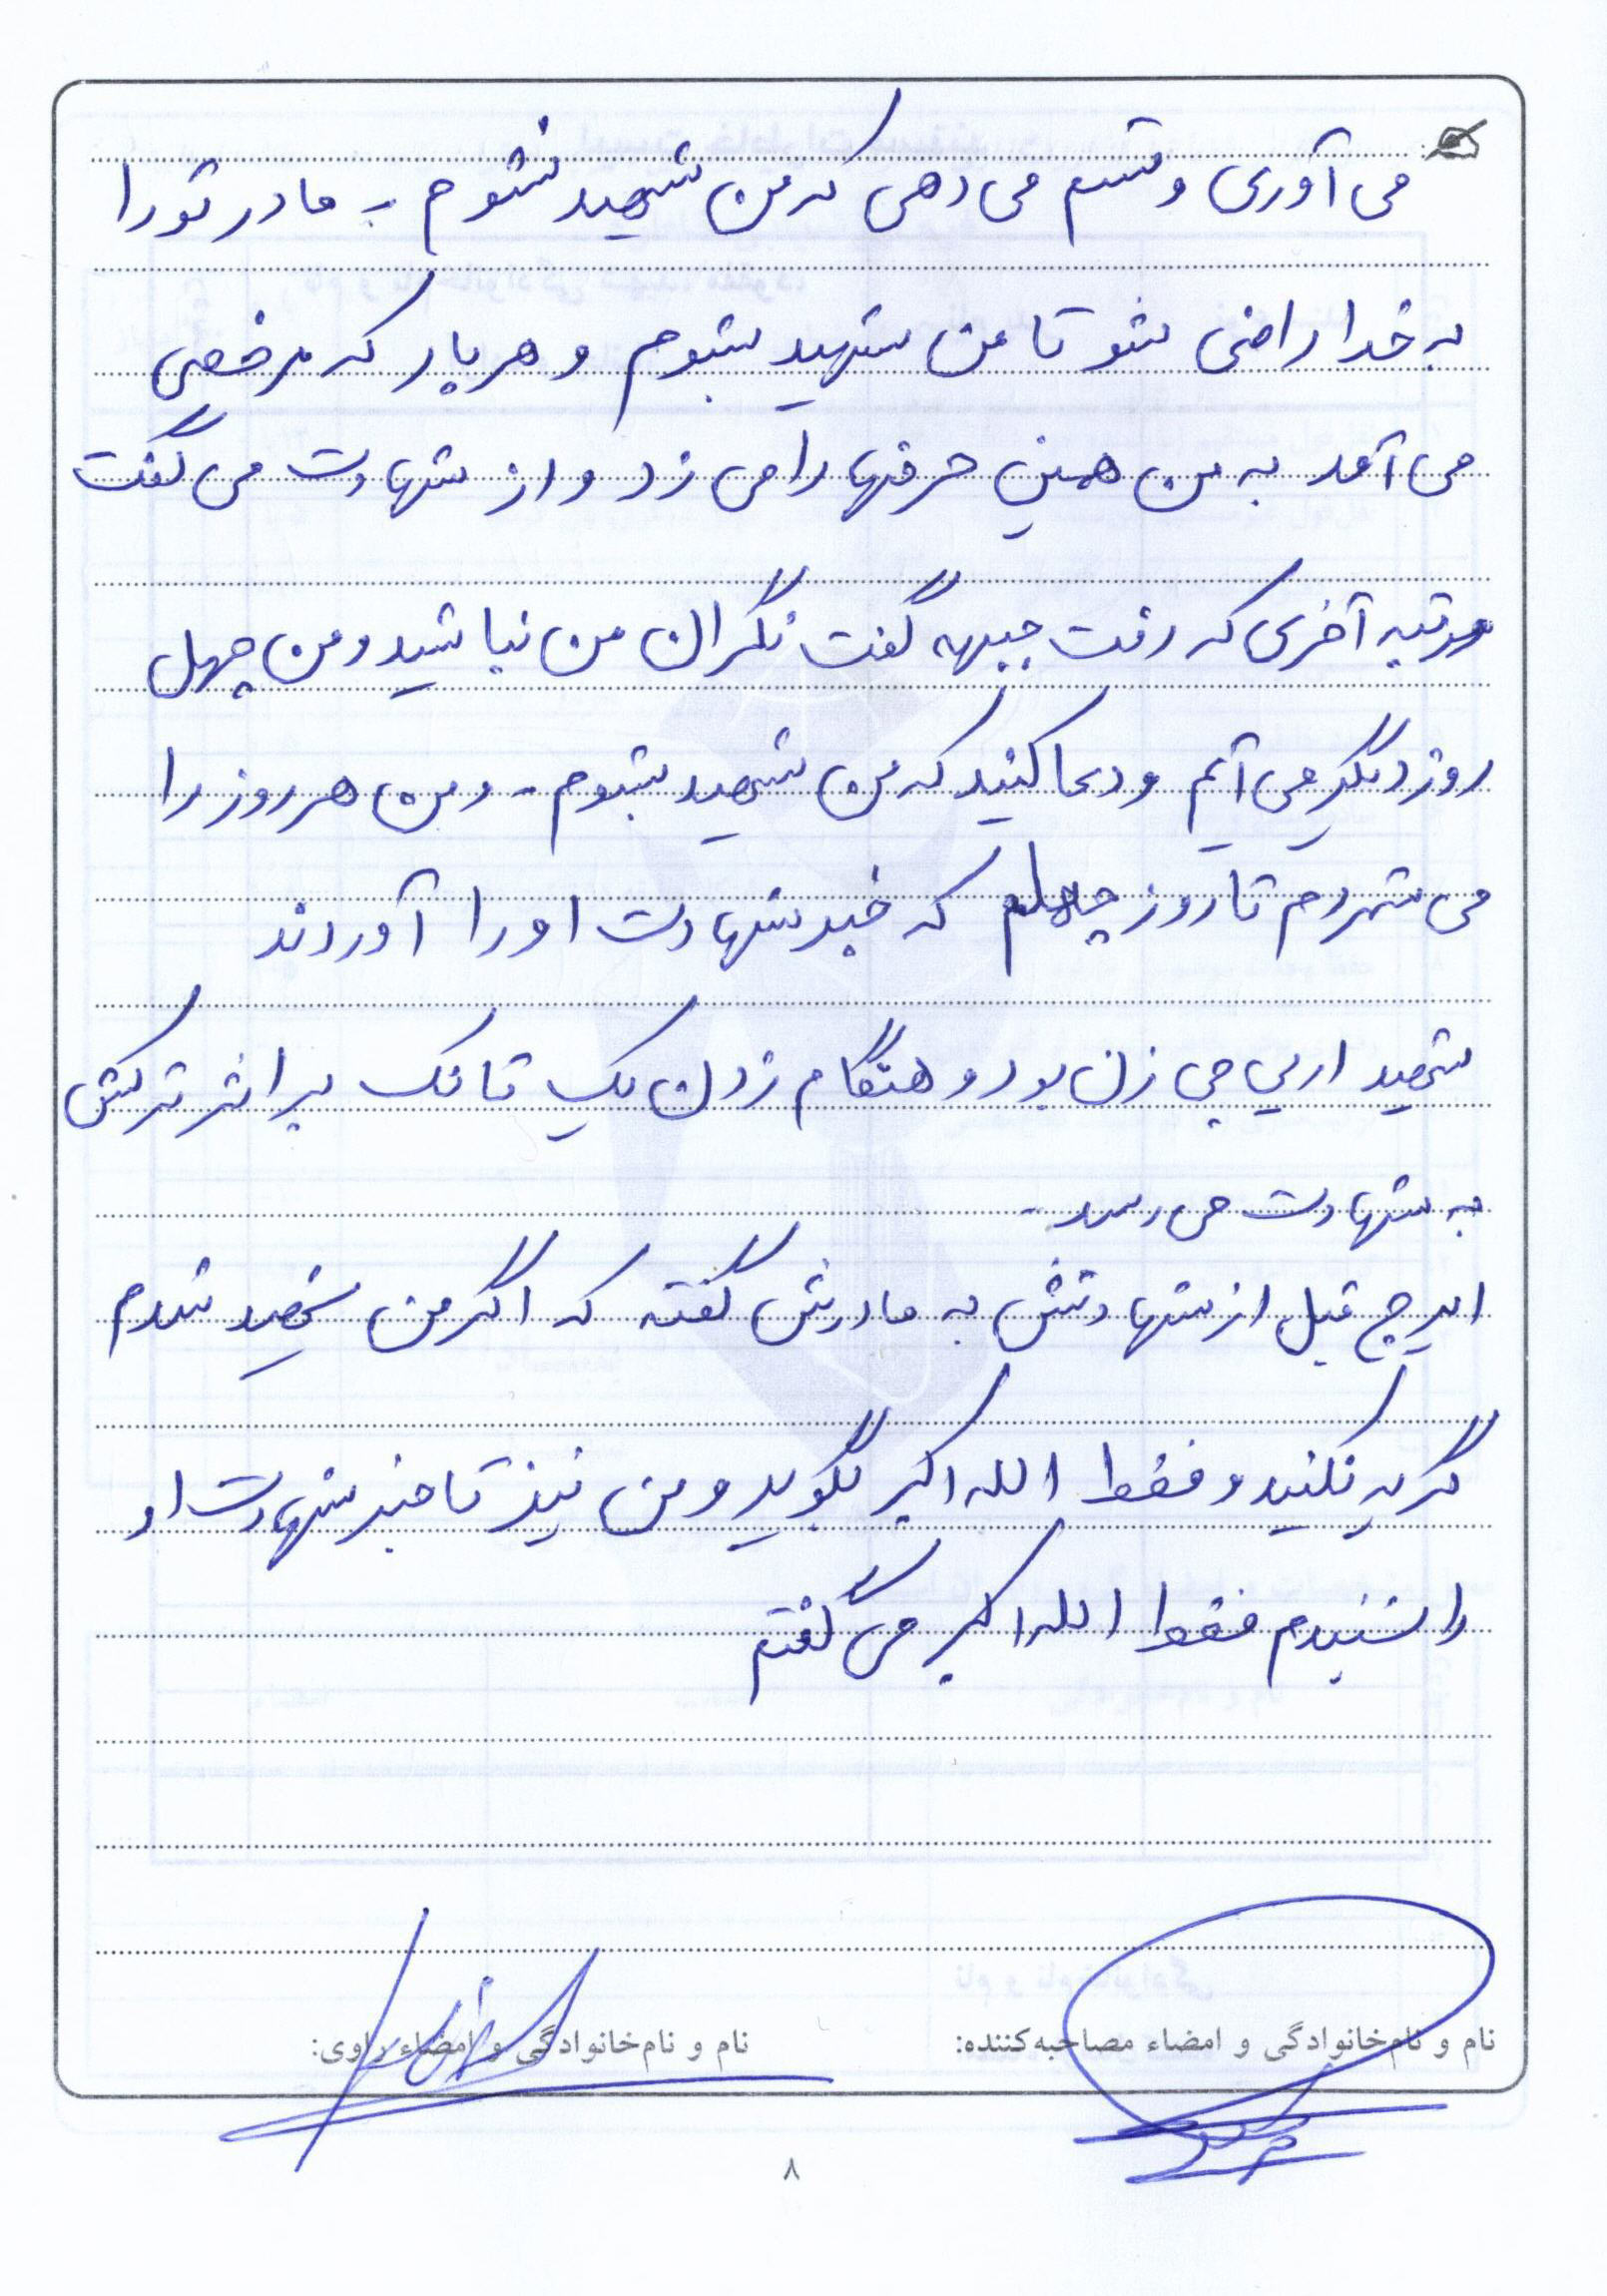 می آوری و قسم می دهی که من شهید نشوم - مادر تو را
به خدا راضی شو تا من شهید بشوم و هر بار که مرخصی
می آمد به من همین حرفها را می زد و از شهادت می گفت
مرتبه آخری که رفت جبهه گفت نگران من نباشید و من چهل
روز دیگر می آیم و دعا کنید که من شهید بشوم - و من هر روز را
می شمردم تا روز چهلم که خبر شهادت او را آوردند
شهید ارپی جی زن بود و هنگام زدن یک تانک بر اثر ترکش
به شهادت می رسد -
ایرج قبل از شهادتش به مادرش گفته که اگر من شهید شدم
گریه نکنید و فقط الله اکبر بگوید و من نیز تا خبر شهادت او
را شنیدم فقط الله اکبر می گفتم
نام و نام‌خانوادگی و امضاء مصاحبه‌کننده:
نام و نام‌خانوادگی و امضاء راوی:
۸